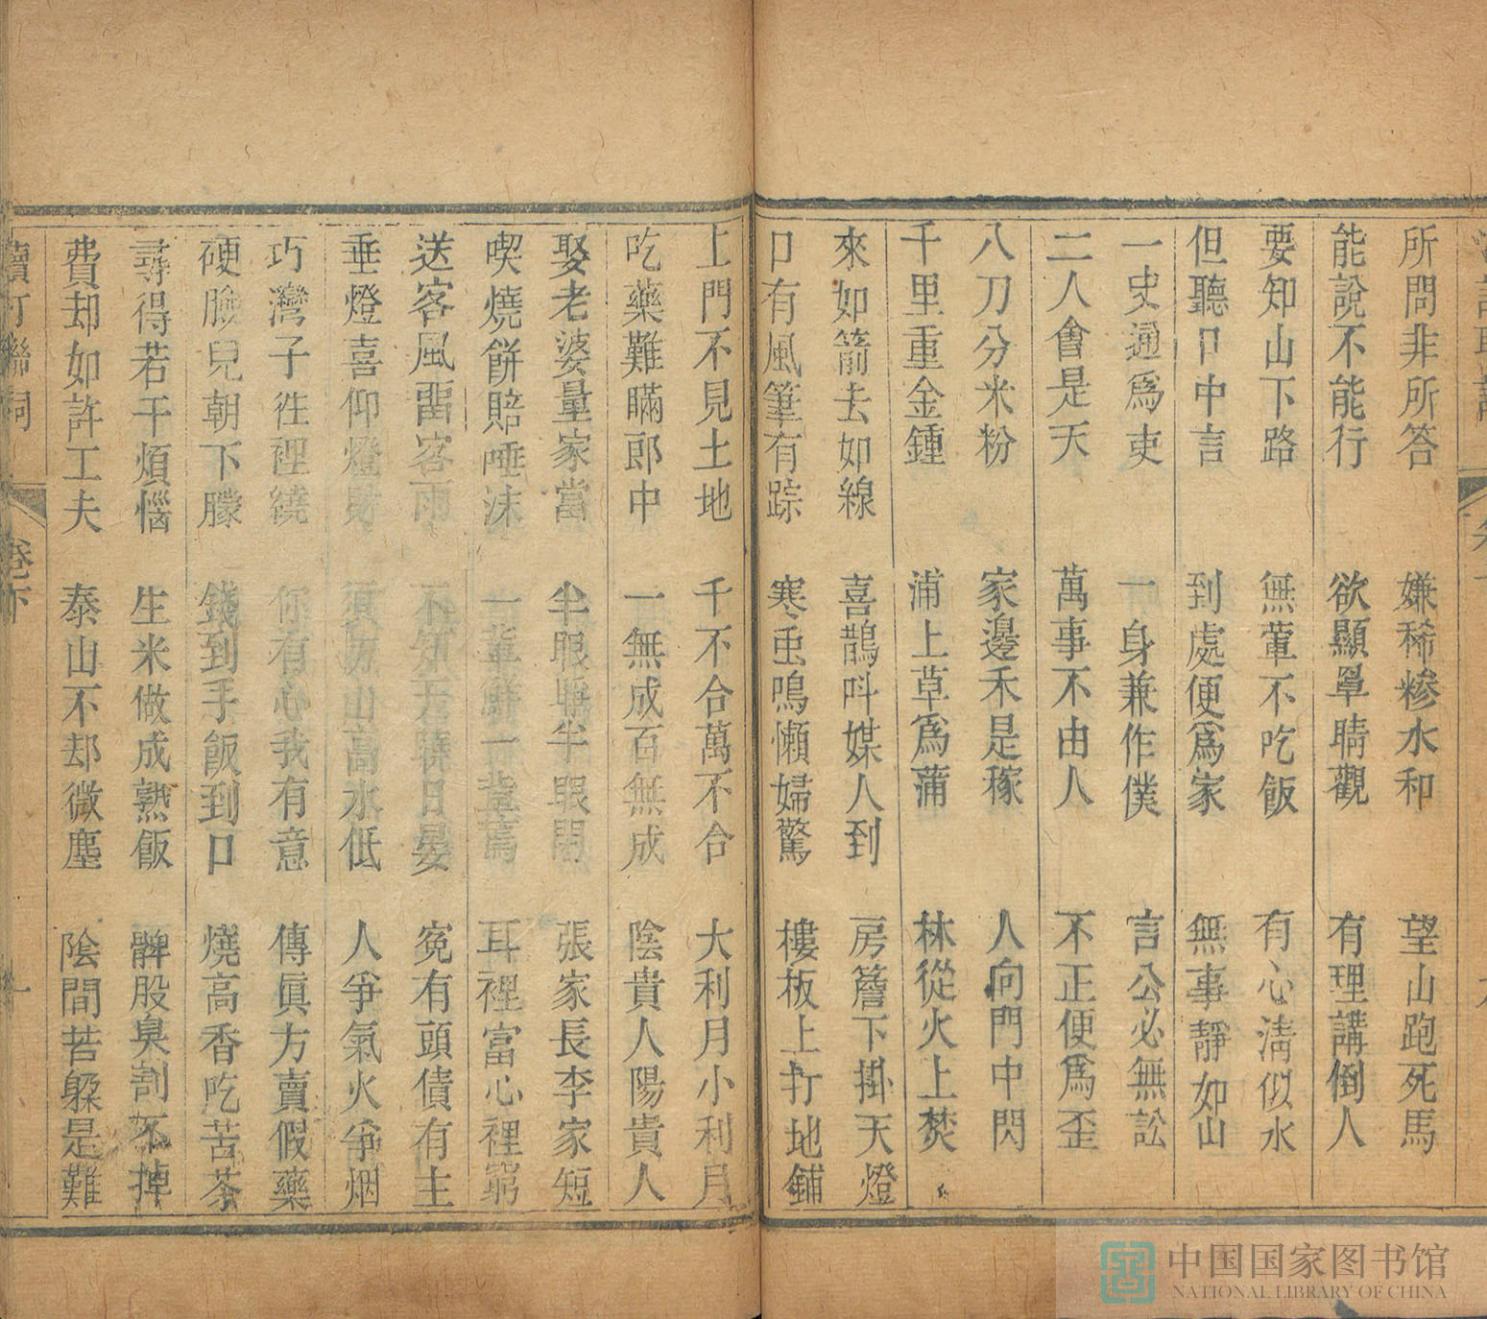 所問非所答 嫌稀摻水和 望山跑死馬
能說不能行 欲顯單睛觀 有理講倒人
要知山下路 無葷不吃飯 有心淸似水
但聽口中言 到處便爲家 無事靜如山
一史通爲吏 一身兼作僕 言公必無訟
二人會是天 萬事不由人 不正便爲歪
八刀分米粉 家邊禾是稼 人向門中閃
千里重金鍾 浦上草爲蒲 林從火上焚
來如箭去如線 喜鵲呌媒人到 房簷下掛天燈
口有風筆有踪 寒虫鳴懶婦驚 樓板上打地鋪
上門不見土地 千不合萬不合 大利月小利月
吃藥難瞞郎中 一無成百無成 陰貴人陽貴人
娶老婆量家當 半眼睜半眼閉 張家長李家短
喫燒餅賠唾沫 一輩鮮一輩蔫 耳裡富心裡窮
送客風畱客雨 不知天曉日晏 寃有頭債有主
垂燈喜仰燈財 須防山高水低 人爭氣火爭烟
巧灣子徃裡繞 你有心我有意 傳眞方賣假藥
硬臉兒朝下朦 錢到手飯到口 燒高香吃苦茶
尋得若干煩惱 生米做成熟飯 髀股臭割不掉
費却如許工夫 泰山不却微塵 陰間苦躱是難
卷下
中国国家图书馆
NATIONAL LIBRARY OF CHINA